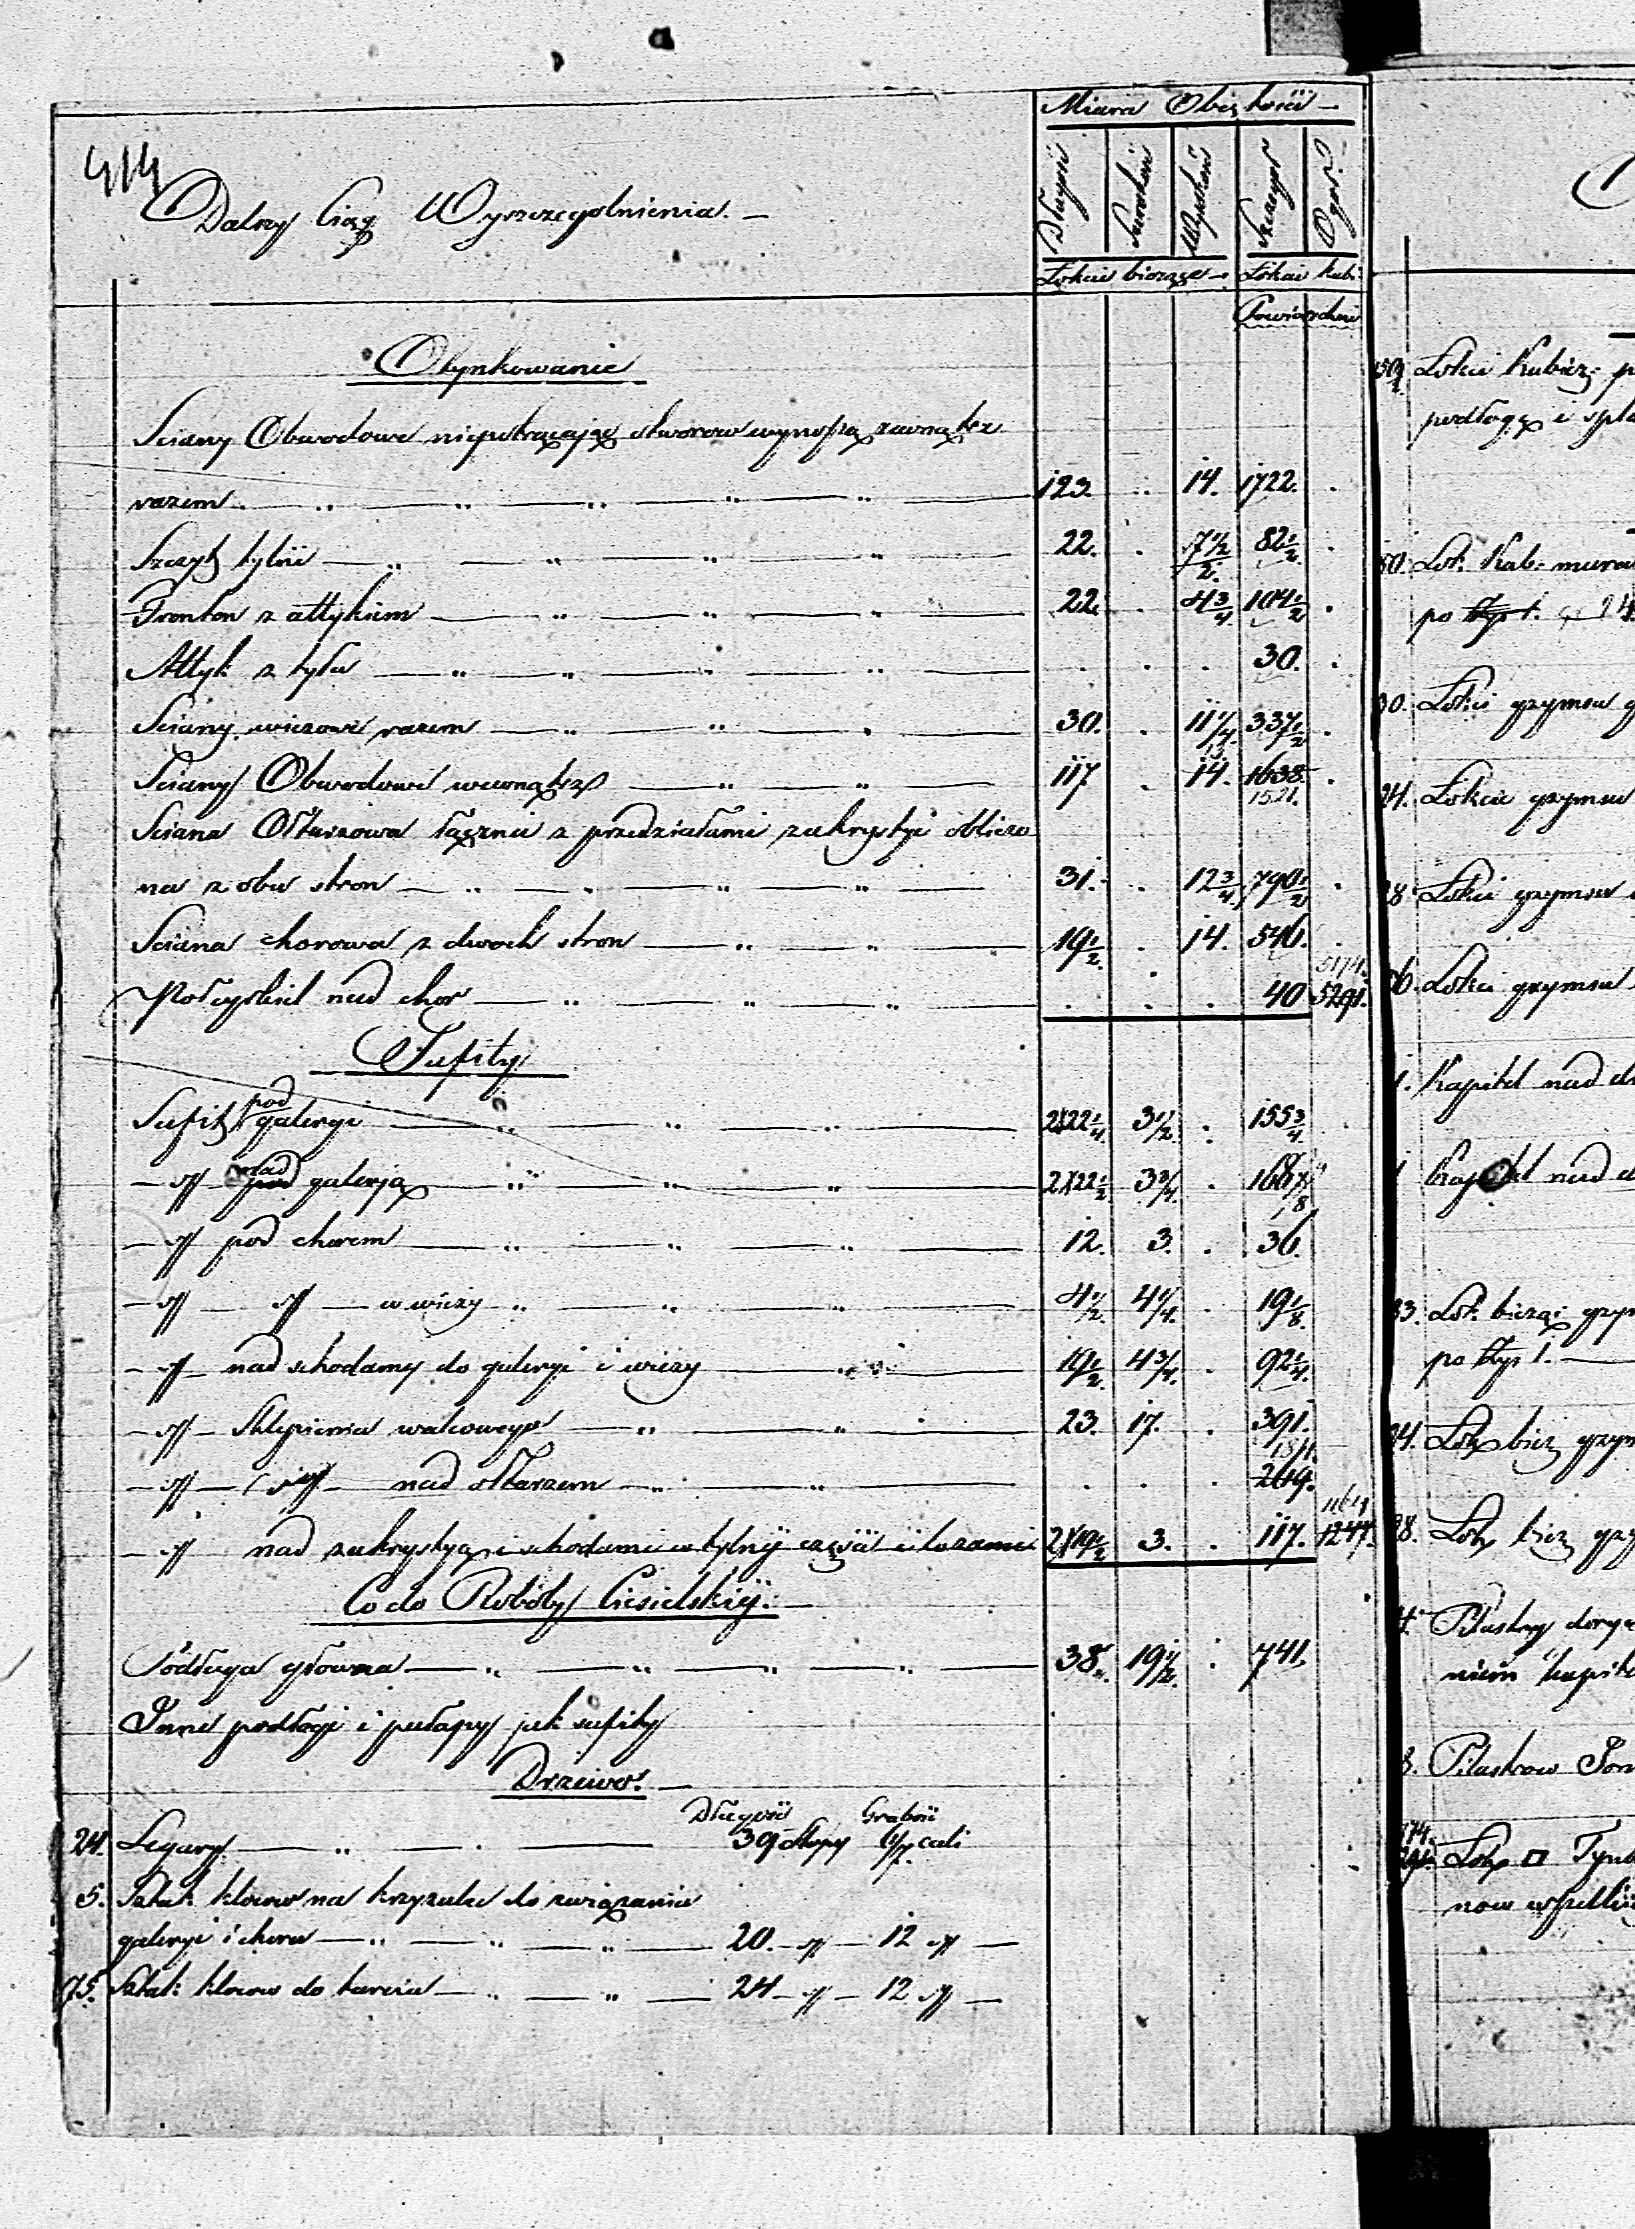 414
Dalszy Ciąg Wyszczegolnienia. —
Miara Objętości —
Długość Szerokość Wysokość Szczegół Ogół
Łokcie bierzące — Łokcie kub:
Powierzchni
Otynkowanie
Sciany Obwodowe niepotrącając otworow wynoszą zewnątrz
razem 123. 14. 1722.
Szczyt tylni 22. 7 1/2 / 2. 82 1/2
Fronton z attykiem 22. 4 3/4 104 1/2
Attyk z tyłu 30.
Sciany wieżowe razem 30. 11 1/4 337 1/2
Sciany Obwodowe wewnątrz 117 13 14. 1638. 1521.
Sciana Ołtarzowa łącznie z przedziałami zakrystyi obliczo
na z obu stron 31. 12 3/4 790 1/2
Sciana chorowa z dwoch stron 19 1/2. 14. 546.
nad chor 40 5174. 5291.
Sufity
Sufit pod galeryi 2X22 1/4 3 1/2 155 3/4
— " — nad pod galerją 2X22 1/2 3 3/4 168 7/8
— " pod chorem 12. 3. 36.
— " — " — w wieży 4 1/2 4 1/4 19 1/8
— " — nad schodamy do galeryi i wieży 19 1/2. 4 3/4 92 1/4
— " — Sklepienia walcowego 23. 17. 391.
— " — " — nad ołtarzem 269.
— " nad zakrystyą i schodami w tylnij części i lożami 2X19 1/2 3. 117. 1247.
Co do Roboty Ciesielskiéj.
Podłoga głowna 38. 19 1/2 741.
Inne podłogi i pułapy jak sufity
Drzewo.
Długość Grubość
24. Legary 39 stopy cali
5. Sztuk klocow na krzyzulce do związania
galeryi i choru 20. — " — 12 " —
75. Sztuk klocow do tarcia 24 — " — 12 " —
Łokci Kubicz: p
podłogę i spła
50. Łok: Kub: mura
po 24.
30. Łokci gzymsu g
24. Łokcie gzymsu
28 Łokci gzymsu
Łokci gzymsu
1. Kapitel nad d
1 Kapitel nad d
33. Łok: bieżąc gzym
po 1. —
24. Łok bież gzym
28. Łok bież gzy
4. Pilastry doryc
niem kapite
8. Pilastrow Jon
174. Łok □ Tynk
now